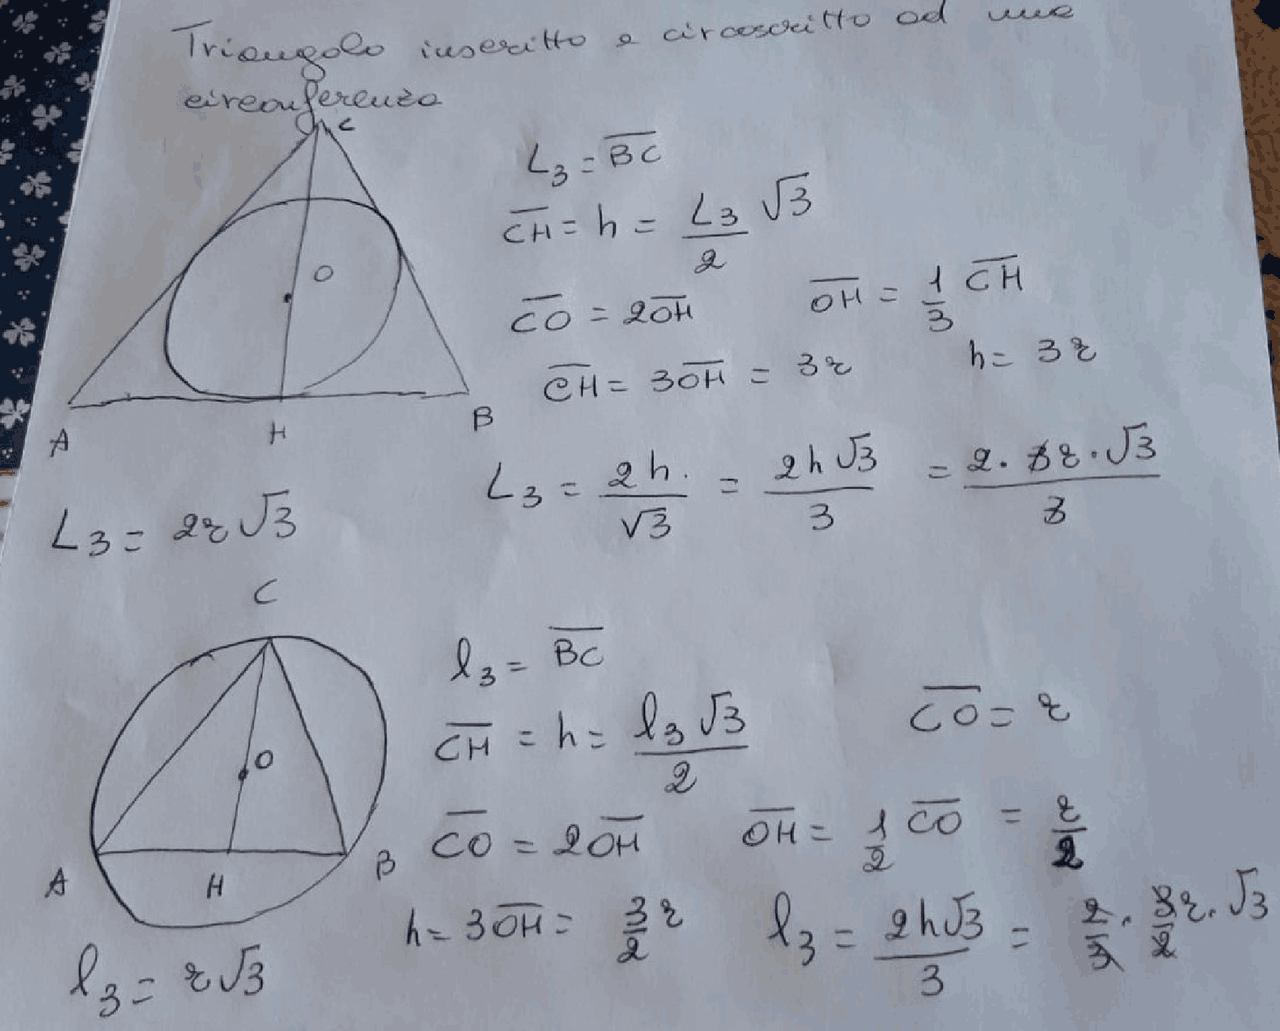 Triangolo inscritto e circoscritto ad una
circonferenza
C
L₃ = B̅C̅
C̅H̅ = h = L₃/2 √3
O
C̅O̅ = 2O̅H̅ O̅H̅ = 1/3 C̅H̅
C̅H̅ = 3O̅H̅ = 3r h = 3r
A H B
L₃ = 2h/√3 = 2h√3/3 = 2·3r·√3/3
L₃ = 2r√3
C
l₃ = B̅C̅
C̅H̅ = h = l₃√3/2 C̅O̅ = r
O
C̅O̅ = 2O̅H̅ O̅H̅ = 1/2 C̅O̅ = r/2
A H B
h = 3O̅H̅ = 3/2 r l₃ = 2h√3/3 = 2/3 · 3/2 r · √3
l₃ = r√3